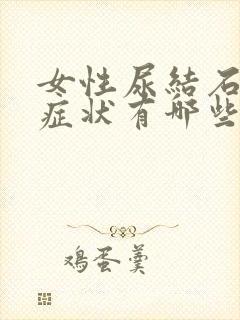 女性尿結石
症状有哪些
鸡蛋羹